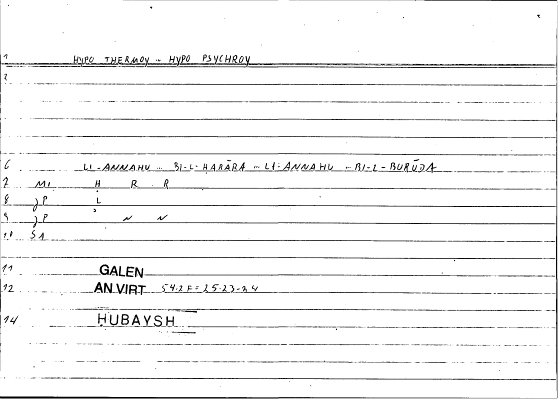 1 HYPO THERMOY - HYPO PSYCHROY
2
6 LI-ANNAHU - BI-L-ḤARĀRA - LI-ANNAHU - BI-L-BURŪDA
7 MI Ḥ R R
8 jP L
9 jP ʾ ~ ~
10 SA
11 GALEN
12 AN VIRT 54.2F = 25.23-24
14 ḤUBAYSH